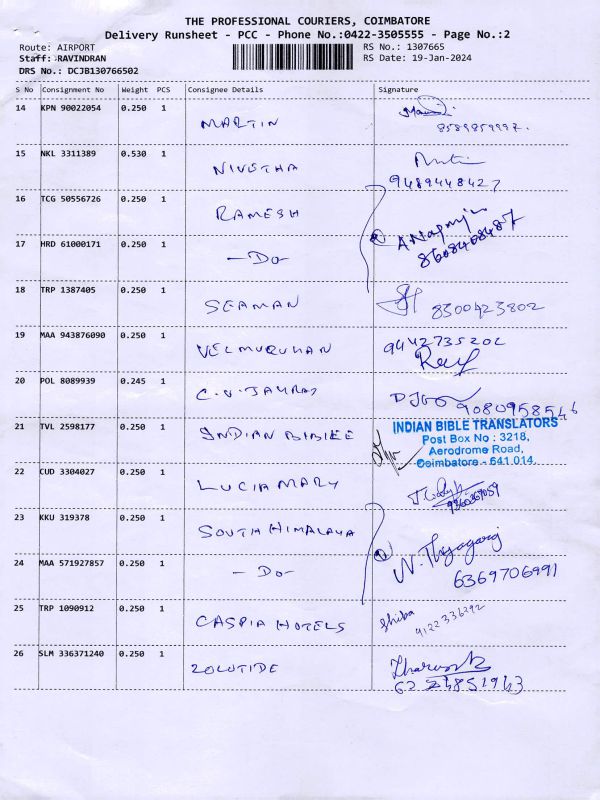 THE PROFESSIONAL COURIERS, COIMBATORE
Delivery Runsheet - PCC - Phone No.:0422-3505555 - Page No.:2
Route: AIRPORT
RS No.: 1307665
Staff: RAVINDRAN
RS Date: 19-Jan-2024
DRS No.: DCJB130766502
S No Consignment No Weight PCS Consignee Details Signature
14 KPN 90022054 0.250 1
MARTIN
8589859997.
15 NKL 3311389 0.530 1
NIVETHA
9489448427
16 TCG 50556726 0.250 1
RAMESH
17 HRD 61000171 0.250 1
-Do-
8608408487
18 TRP 1387405 0.250 1
SEAMAN 8300423802
19 MAA 943876090 0.250 1
9442735202
VELMURUHAN
20 POL 8089939 0.245 1
C.V. JAYRAJ
21 TVL 2598177 0.250 1
INDIAN BIBLEE
INDIAN BIBLE TRANSLATORS
Post Box No : 3218,
Aerodrome Road,
Coimbatore - 641 014.
22 CUD 3304027 0.250 1
LUCIA MARY
23 KKU 319378 0.250 1
SOUTH HIMALAYA
N. Thyagaraj
24 MAA 571927857 0.250 1
-Do-
6369706991
25 TRP 1090912 0.250 1
CASPIA HOTELS
Shiba
9122336292
26 SLM 336371240 0.250 1
ZOLUTIDE